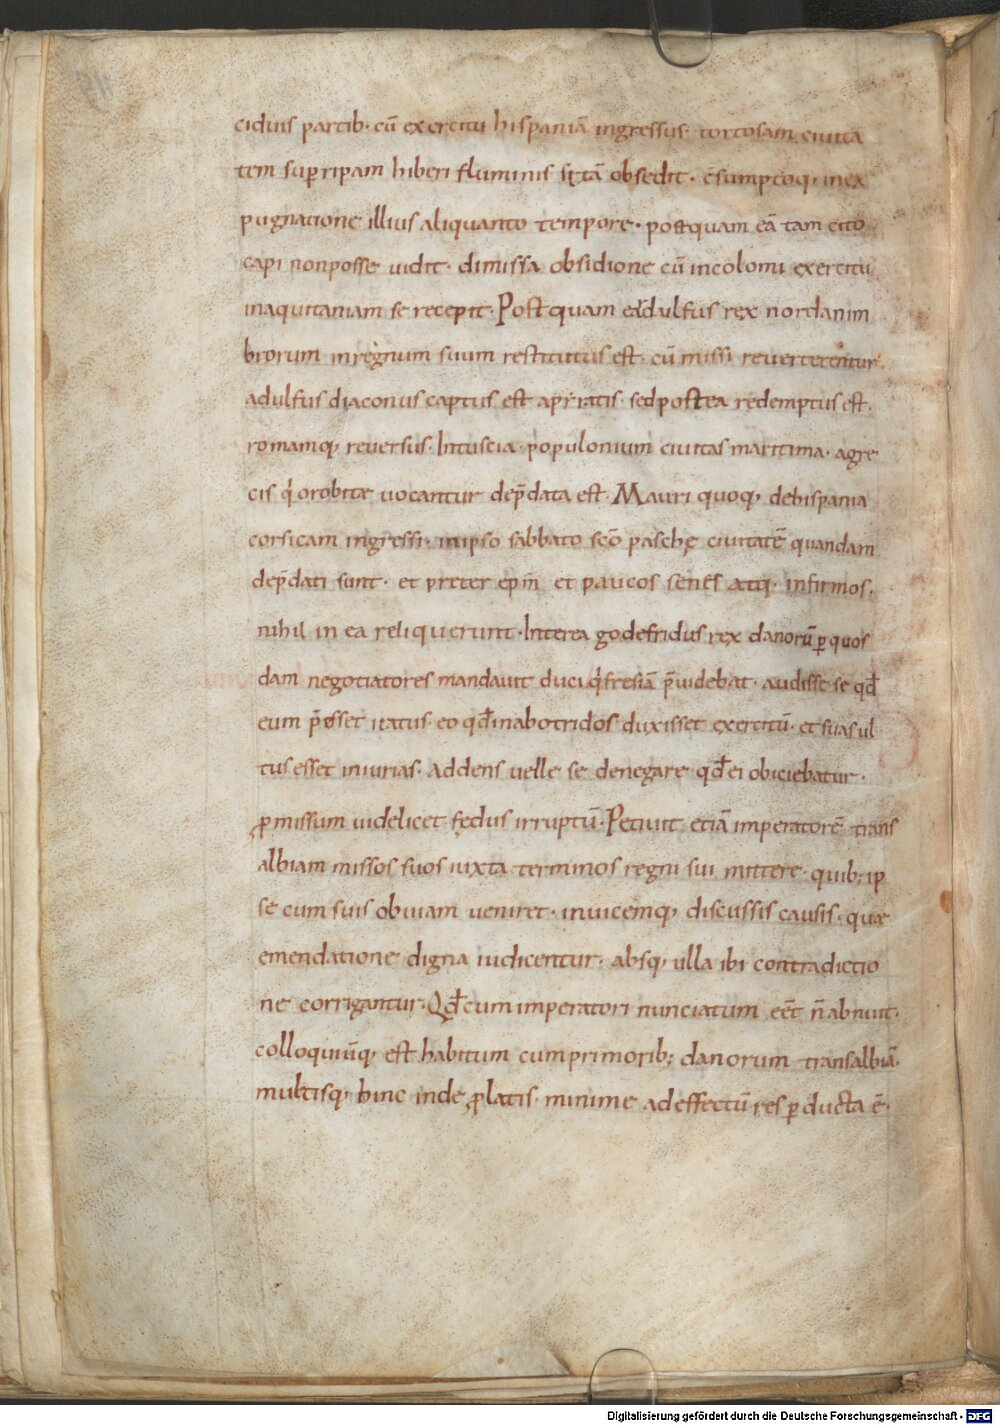 ciduis partib· cū exercitu hispaniā ingressus· tortosam ciuita
tem sup̄ ripam hiberi fluminis sitā obsedit· c̄sumptoq; inex
pugnatione illius aliquanto tempore· postquam eā tam cito
capi non posse uidit· dimissa obsidione cū incolomi exercitu
in aquitaniam se recepit· Postquam eardulfus rex nordanim
brorum in regnum suum restitutus est· cū missi reuerterentur·
adulfus diaconus captus est a pirratis· sed postea redemptus est·
romamq; reuersus· In tuscia populonium ciuitas maritima· a gre
cis q̇ orobitæ uocantur dep̄data est· Mauri quoq; de hispania
corsicam ingressi· in ipso sabbato sc̄o paschę ciuitatē quandam
dep̄dati sunt· et preter ep̄m et paucos senes atq; infirmos·
nihil in ea reliquerunt· Interea godefridus rex danorū p̱ quos
dam negotiatores mandauit duci q̇ fresiā p̄uidebat· audisse se qd̄
eum p̄ esset iratus· eo qd̄ in abotridos duxisset exercitū· et suas ul
tus esset iniurias· Addens uelle se denegare qd̄ ei obiciebatur·
ꝓmissum uidelicet fędus irruptū· Petiuit etiā imperatorē trans
albiam missos suos iuxta terminos regni sui mittere· quib; ip
se cum suis obuiam ueniret· inuicemq; discussis causis· quæ
emendatione digna iudicentur· absq; ulla ibi contradictio
ne corrigantur· Qd̄ cum imperatori nunciatum eēt n̄ abnuit·
colloquiūq; est habitum cum primorib; danorum trans albiā·
multisq; hinc inde ꝓlatis· minime ad effectū res p̱ducta ē·
Digitalisierung gefördert durch die Deutsche Forschungsgemeinschaft - DFG